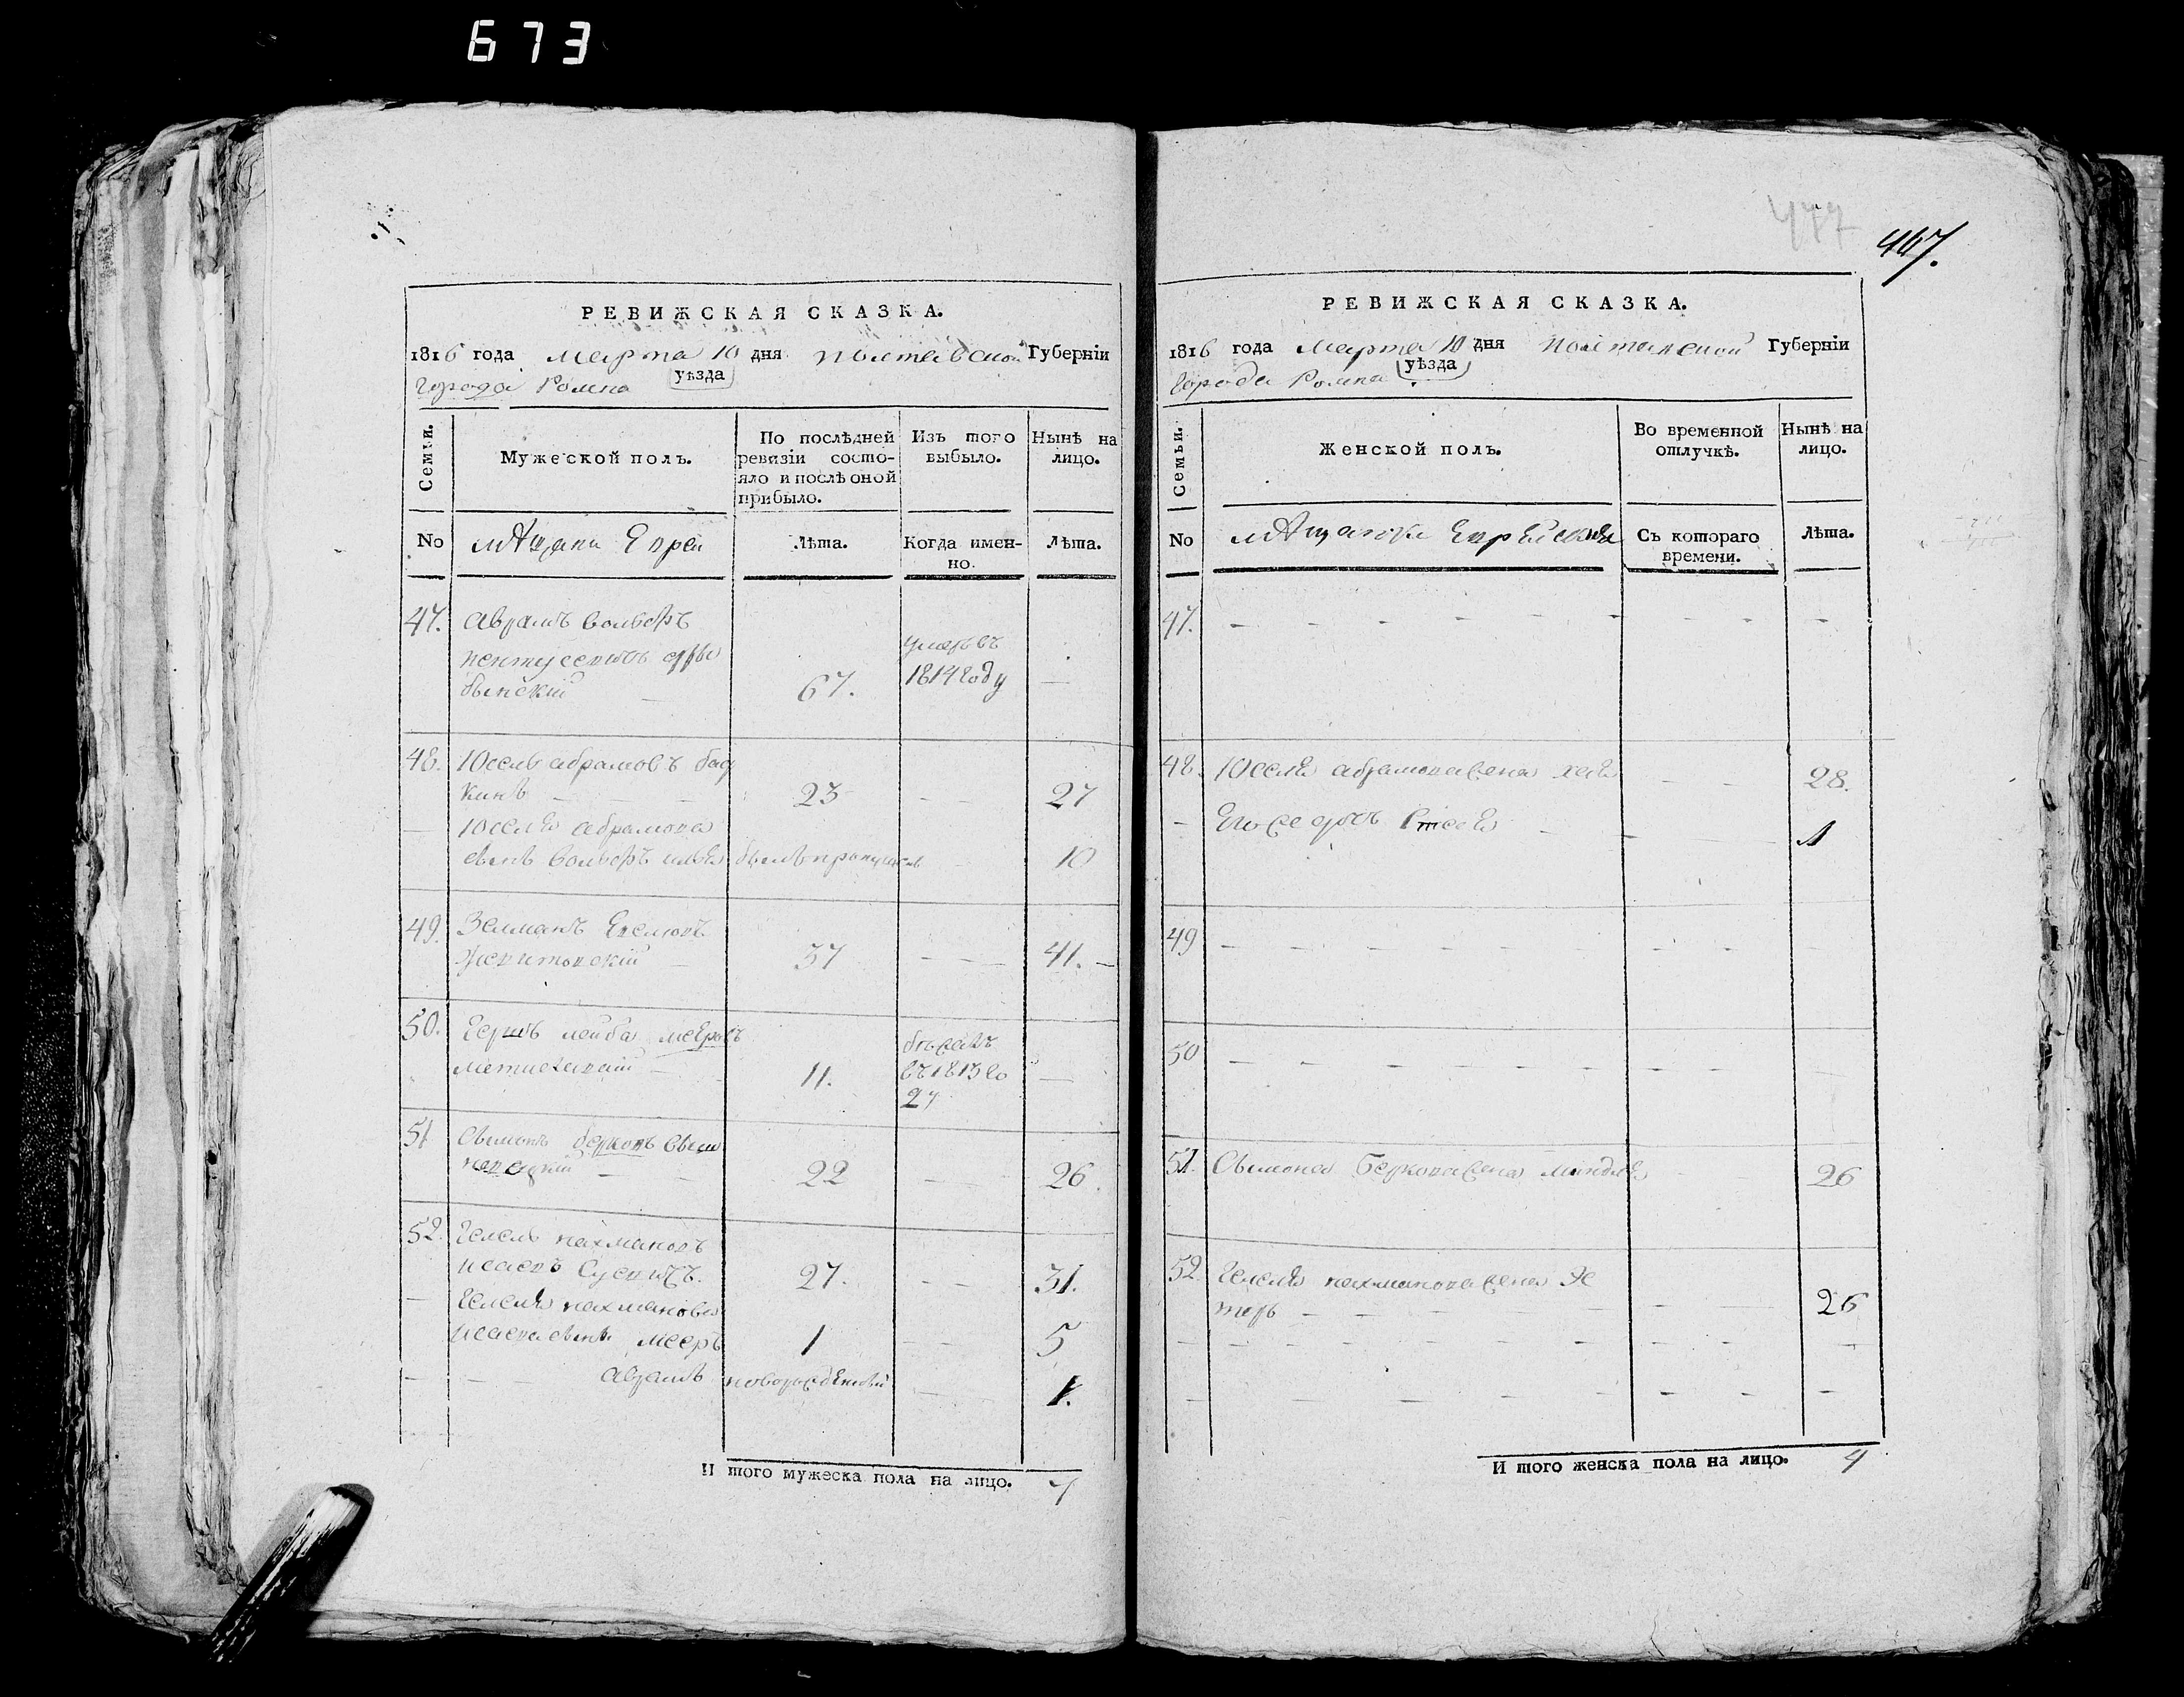 673
РЕВИЖСКАЯ СКАЗКА.
1816 года Марта 10 дня Полтавской Губерніи
города Ромна уѣзда
Семьи.
Мужеской полъ.
По послѣдней ревизіи состо-
яло и послѣ оной
прибыло.
Изъ того
выбыло.
Нынѣ на
лицо.
No
мѣщани Евреи
Лѣта.
Когда имен-
но.
Лѣта.
47. Аврамъ Вольфъ
67.
умеръ въ
1814 году
—
48. Юсель абрамовъ
23 — 27
— Юселя абрамова
сынъ Вольфъ был пропущенъ — 10
49. Зелманъ
37 — 41.
50. Гершъ лейба мееровъ
11.
въ 1813 го
ду
—
51 Симонъ берковъ
22 — 26.
52. Гесель нахмановъ
исаевъ
27. — 31.
— Геселя нахманова
исаева сынъ мееръ 1 — 5
— — — аврамъ новорожденный — 1.
И того мужеска пола на лицо. 7
477
467.
РЕВИЖСКАЯ СКАЗКА.
1816 года Марта 10 дня Полтавской Губерніи
города Ромна уѣзда
Семьи.
Женской полъ.
Во временной
отлучкѣ.
Нынѣ на
лицо.
No
мѣщанки Еврейские
Съ котораго
времени.
Лѣта.
47. — — — — — —
48. Юселя абрамова жена хая — — 28.
— Его дочь — — 1
49 — — — — — —
50 — — — — — —
51. Симона Беркова жена миндля — 26
52. Геселя нахманова жена Эс
теръ — — — 26
— — — — — —
— — — — — —
И того женска пола на лицо. 4